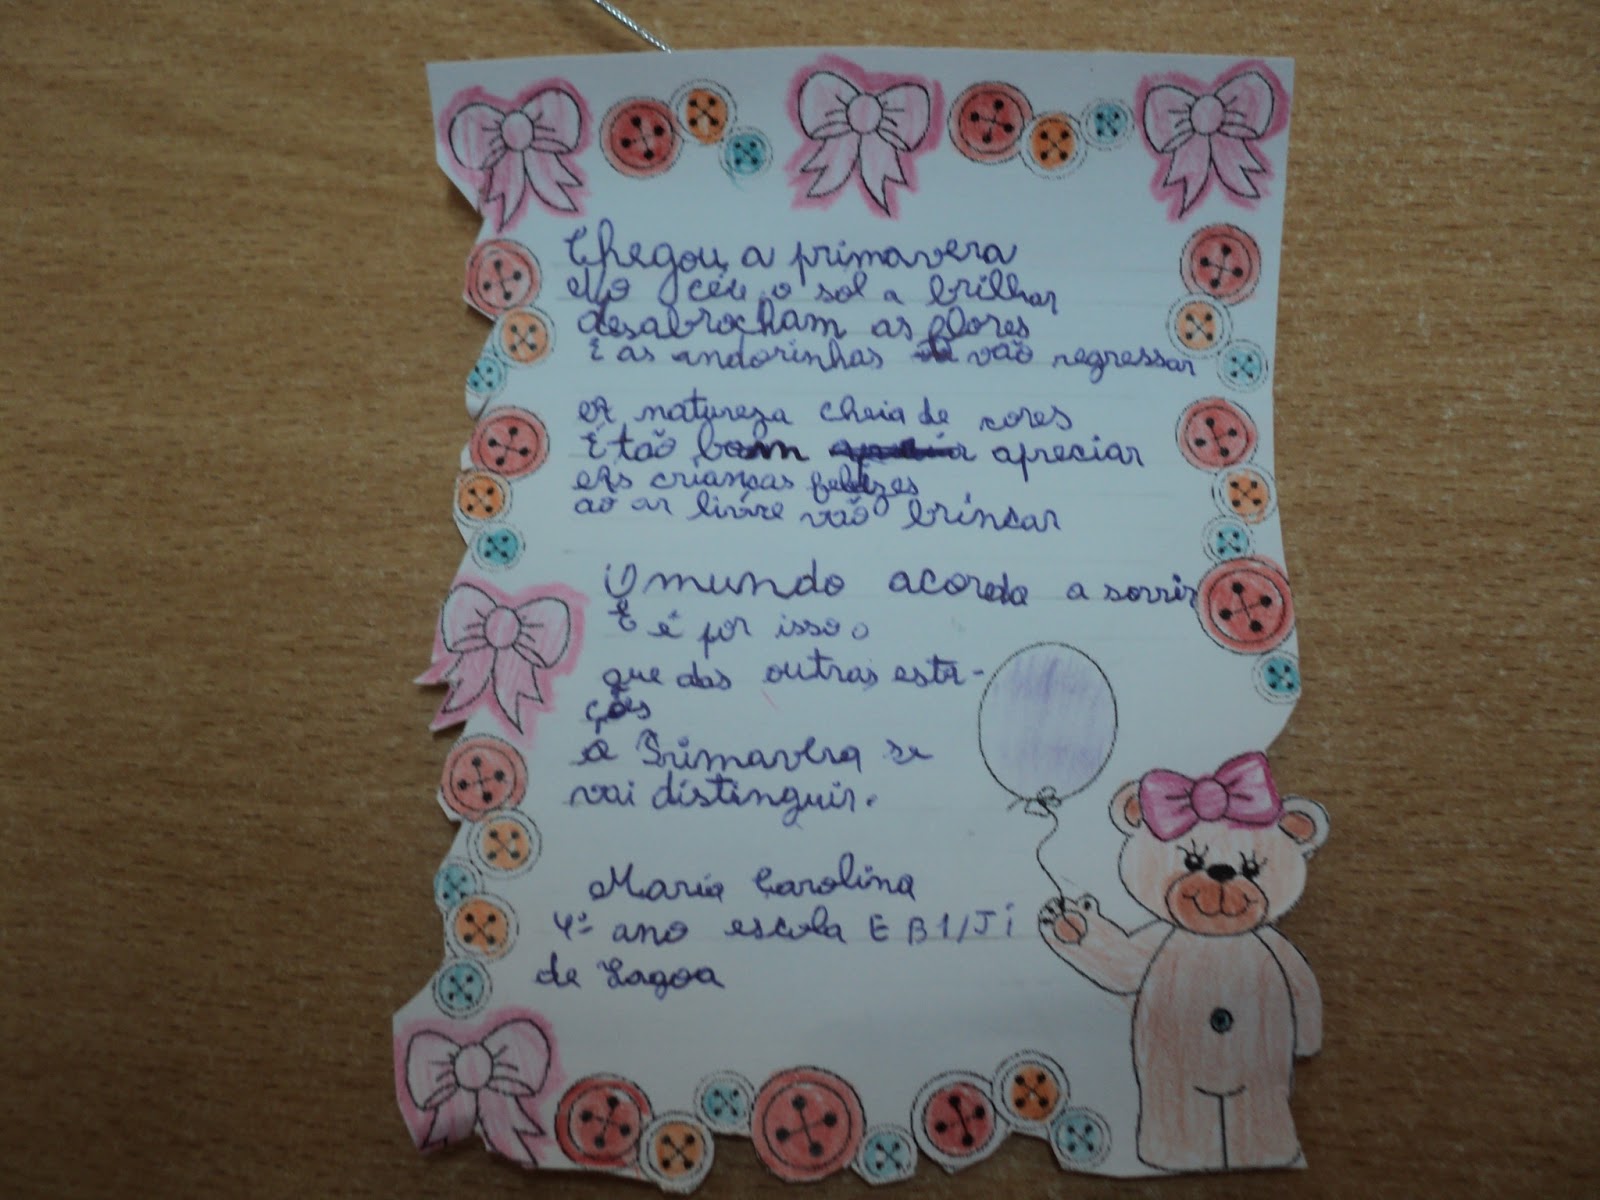 Chegou a primavera
No céu o sol a brilhar
desabrocham as flores
E as andorinhas vão regressar
A natureza cheia de cores
É tão bom apreciar
As crianças felizes
ao ar livre vão brincar
O mundo acorda a sorrir
E é por isso
que das outras esta-
ções
a Primavera se
vai distinguir.
Maria Carolina
4º ano escola E B1/JI
de Lagoa